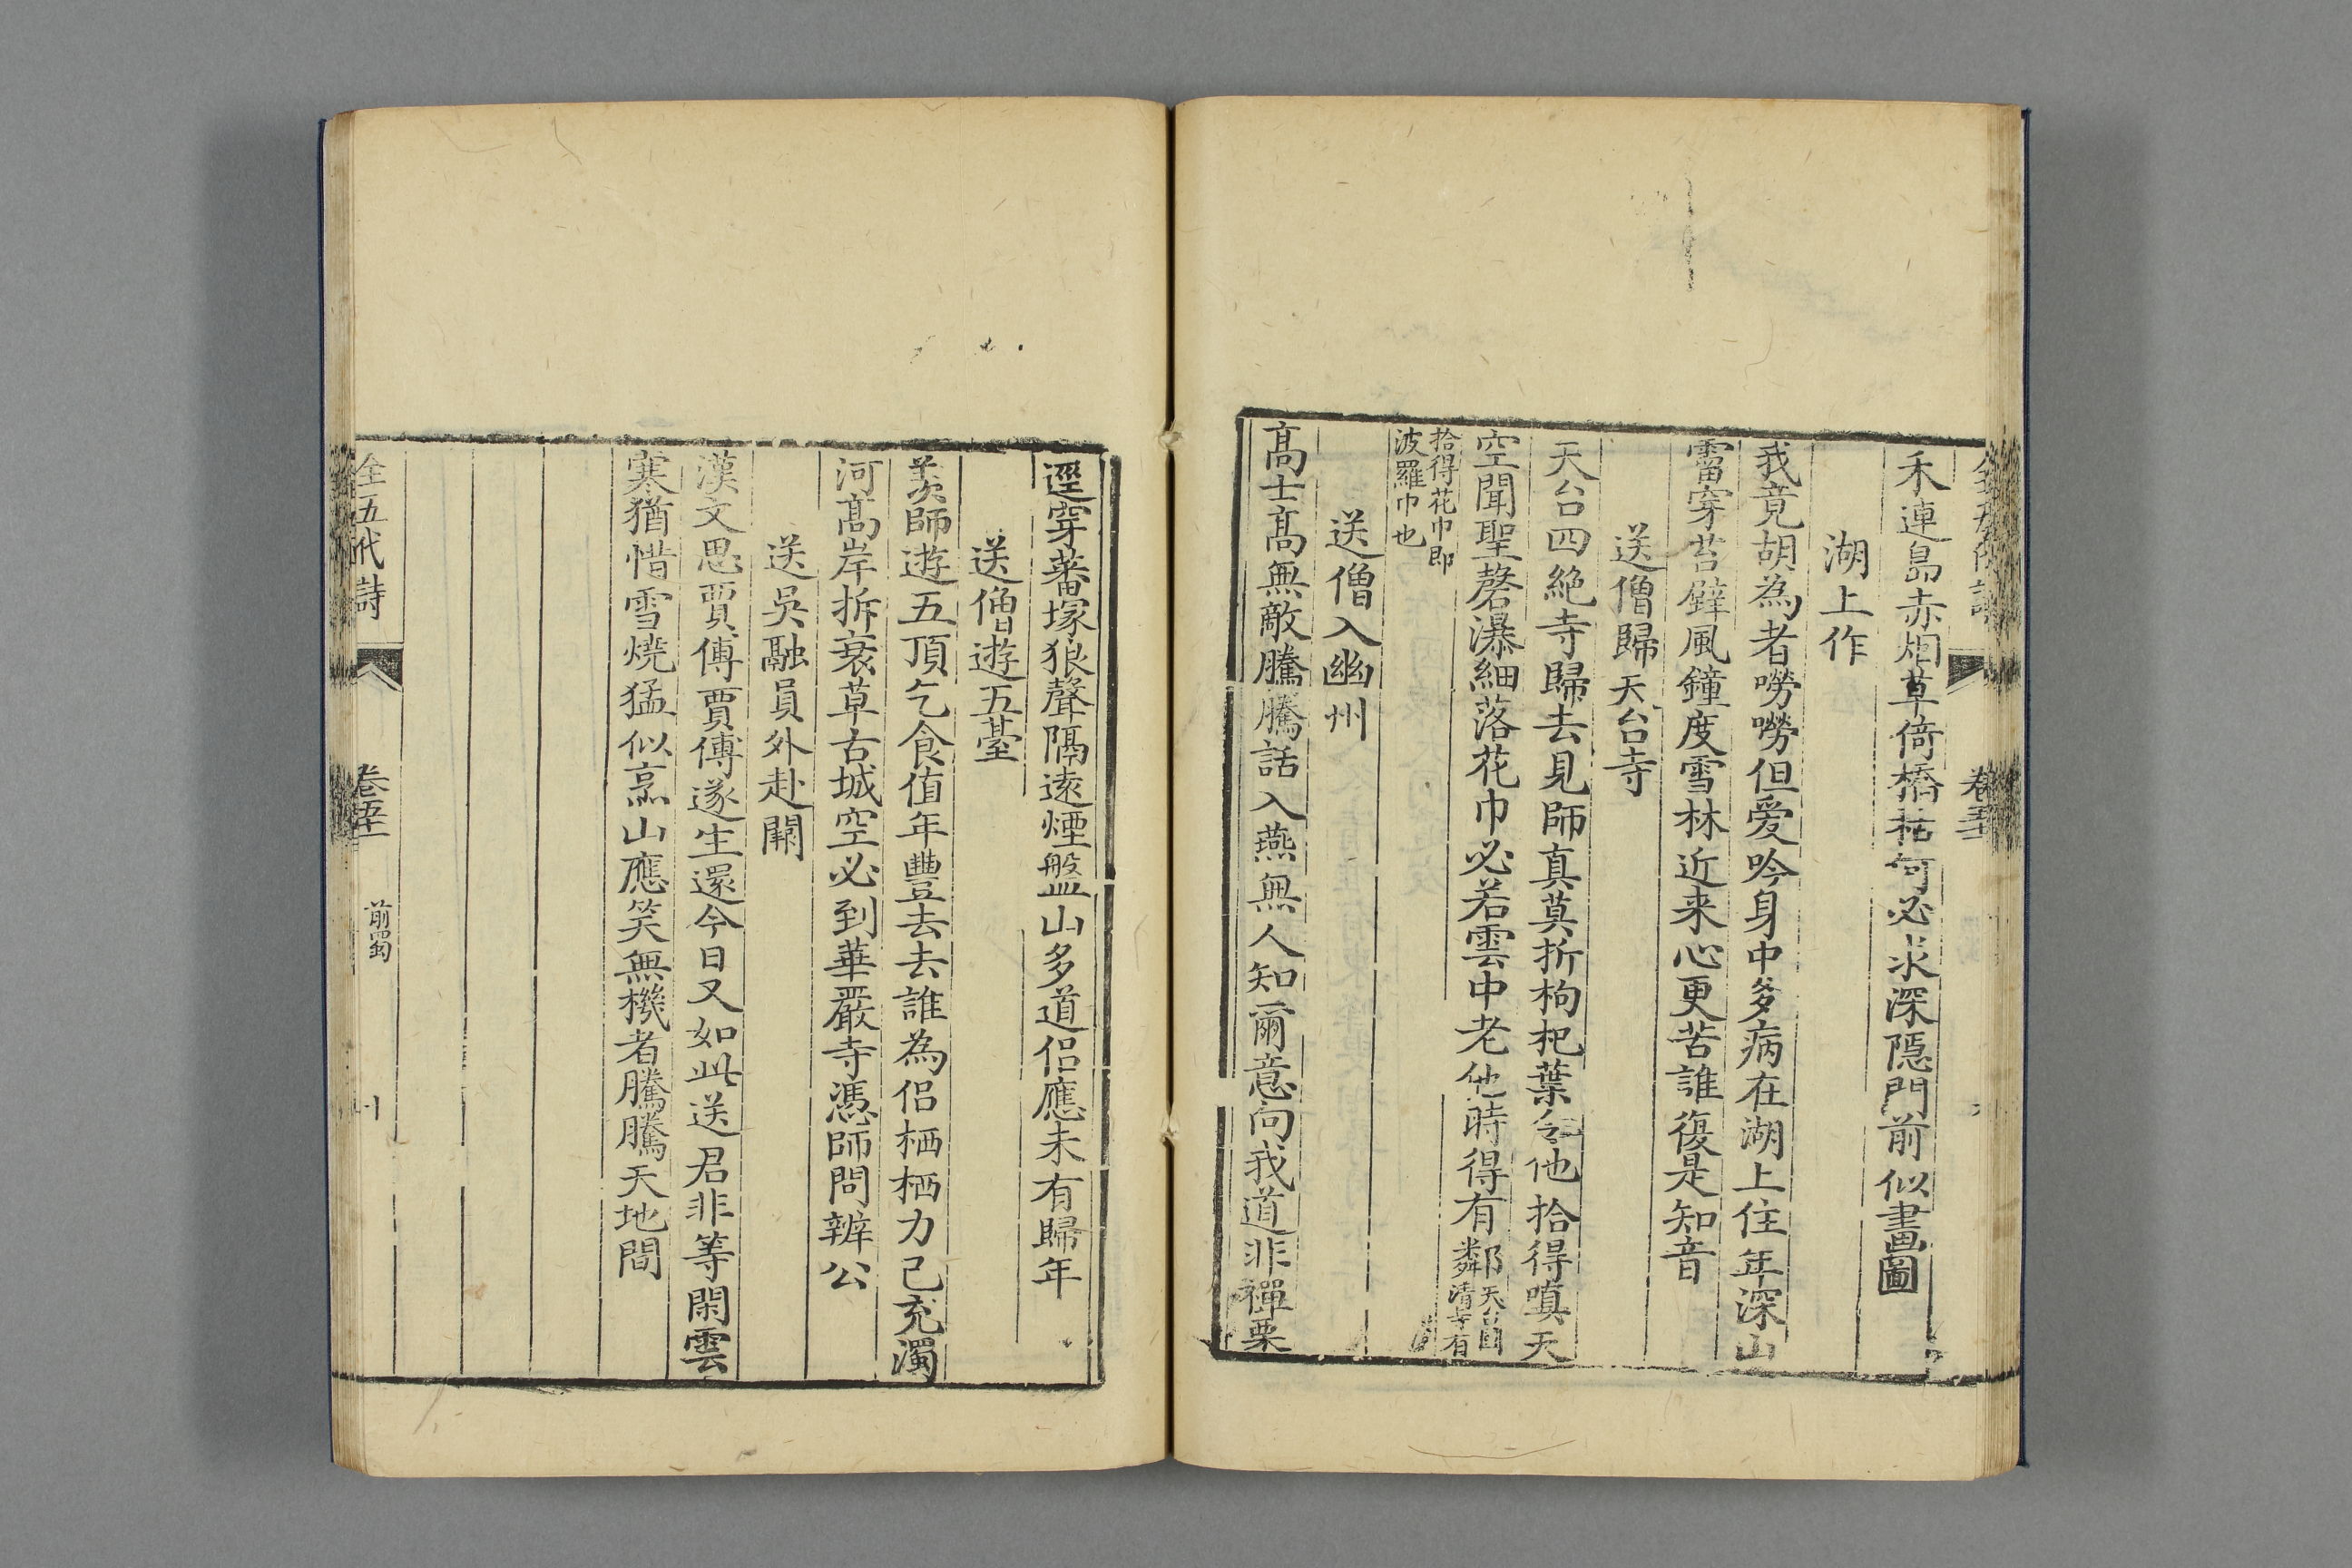 禾連島赤烟草倚橋枯何必求深隱門前似畫圖
湖上作
我竟胡為者嘮嘮但愛吟身中多病在湖上住年深山
霤穿苔壁風鐘度雪林近来心更苦誰復是知音
送僧歸天台寺
天台四絶寺歸去見師真莫折枸杞葉令他拾得嗔天
空聞聖磬瀑細落花巾必若雲中老他時得有鄰天台國
清寺有
拾得花巾即
波羅巾也
送僧入幽州
髙士髙無敵騰騰話入燕無人知爾意向我道非禪栗
逕穿蕃塚狼聲隔遠煙盤山多道侣應未有歸年
送僧遊五薹
羨師遊五頂乞食值年豐去去誰為侣栖栖力已充濁
河髙岸拆衰草古城空必到華嚴寺憑師問辨公
送吳融員外赴闕
漢文思賈傅賈傅遂生還今日又如此送君非等閑雲
寒猶惜雪燒猛似烹山應笑無機者騰騰天地間
全五代詩
卷五
前蜀